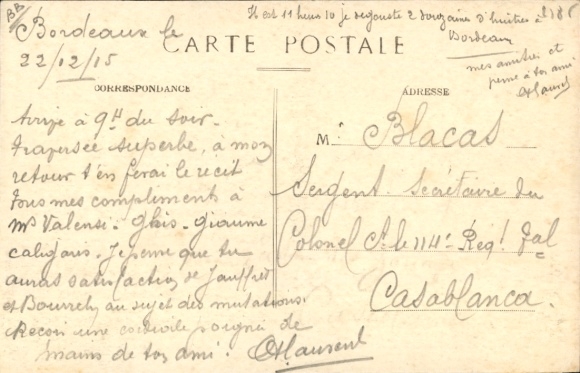 BB
Il est 11 heures 10 je déguste 2 douzaines d'huîtres à
Bordeaux
mes amitiés et
pense à ton ami
Laurent
Bordeaux le
22/12/15
CARTE POSTALE
CORRESPONDANCE
ADRESSE
Arrivé à 9H du soir.
Traversée superbe, à mon
retour t'en ferai le récit
Tous mes compliments à
Mrs Valensi. Giaume
Je pense que tu
auras satisfaction de Jauffret
et au sujet des mutations.
Reçois une cordiale poignée de
mains de ton ami. Laurent
M. Blacas
Sergent Secrétaire du
Colonel Ct le 114e Regt Tal
Casablanca.